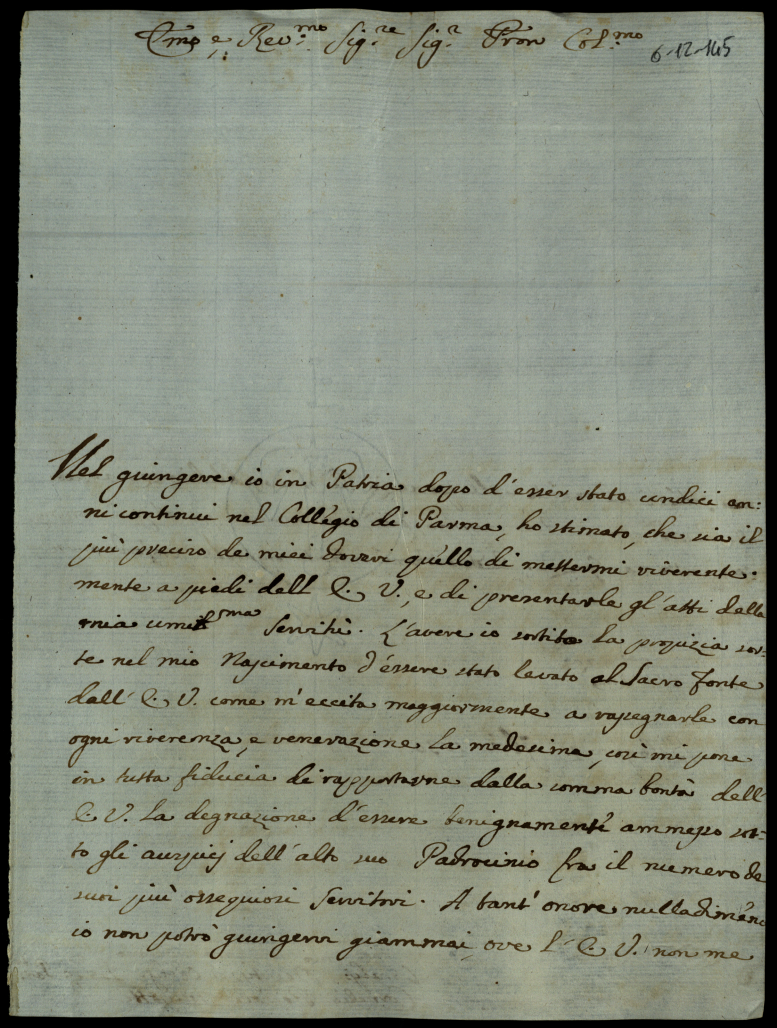 Emo e Rev.mo Sig.re Sig.r Pron Col.mo
6-12-145
Nel guingere io in Patria dopo d'esser stato undici an:
ni continui nel Collegio di Parma, ho stimato, che sia il
più preciso de miei doveri quello di mettermi riverente:
mente a piedi dell' E. V., e di presentarle gl'atti della
mia umil.sma Servitù. L'avere io sortito la propizia sor:
te nel mio Nascimento d'éssere stato levato al Sacro fonte
dall' E. V. come m'eccita maggiormente a rassegnarle con
ogni riverenza, e venerazione la medesima, così mi pone
in tutta fiducia di rapportarne dalla somma bontà dell'
E. V. la degnazione d'essere benignamente ammesso sot:
to gli auspicj dell'alto suo Padrocinio fra il numero de
suoi più ossequiosi Servitori. A tant'onore nulladimeno
io non potrò guingervi giammai, ove l'E. V. non me